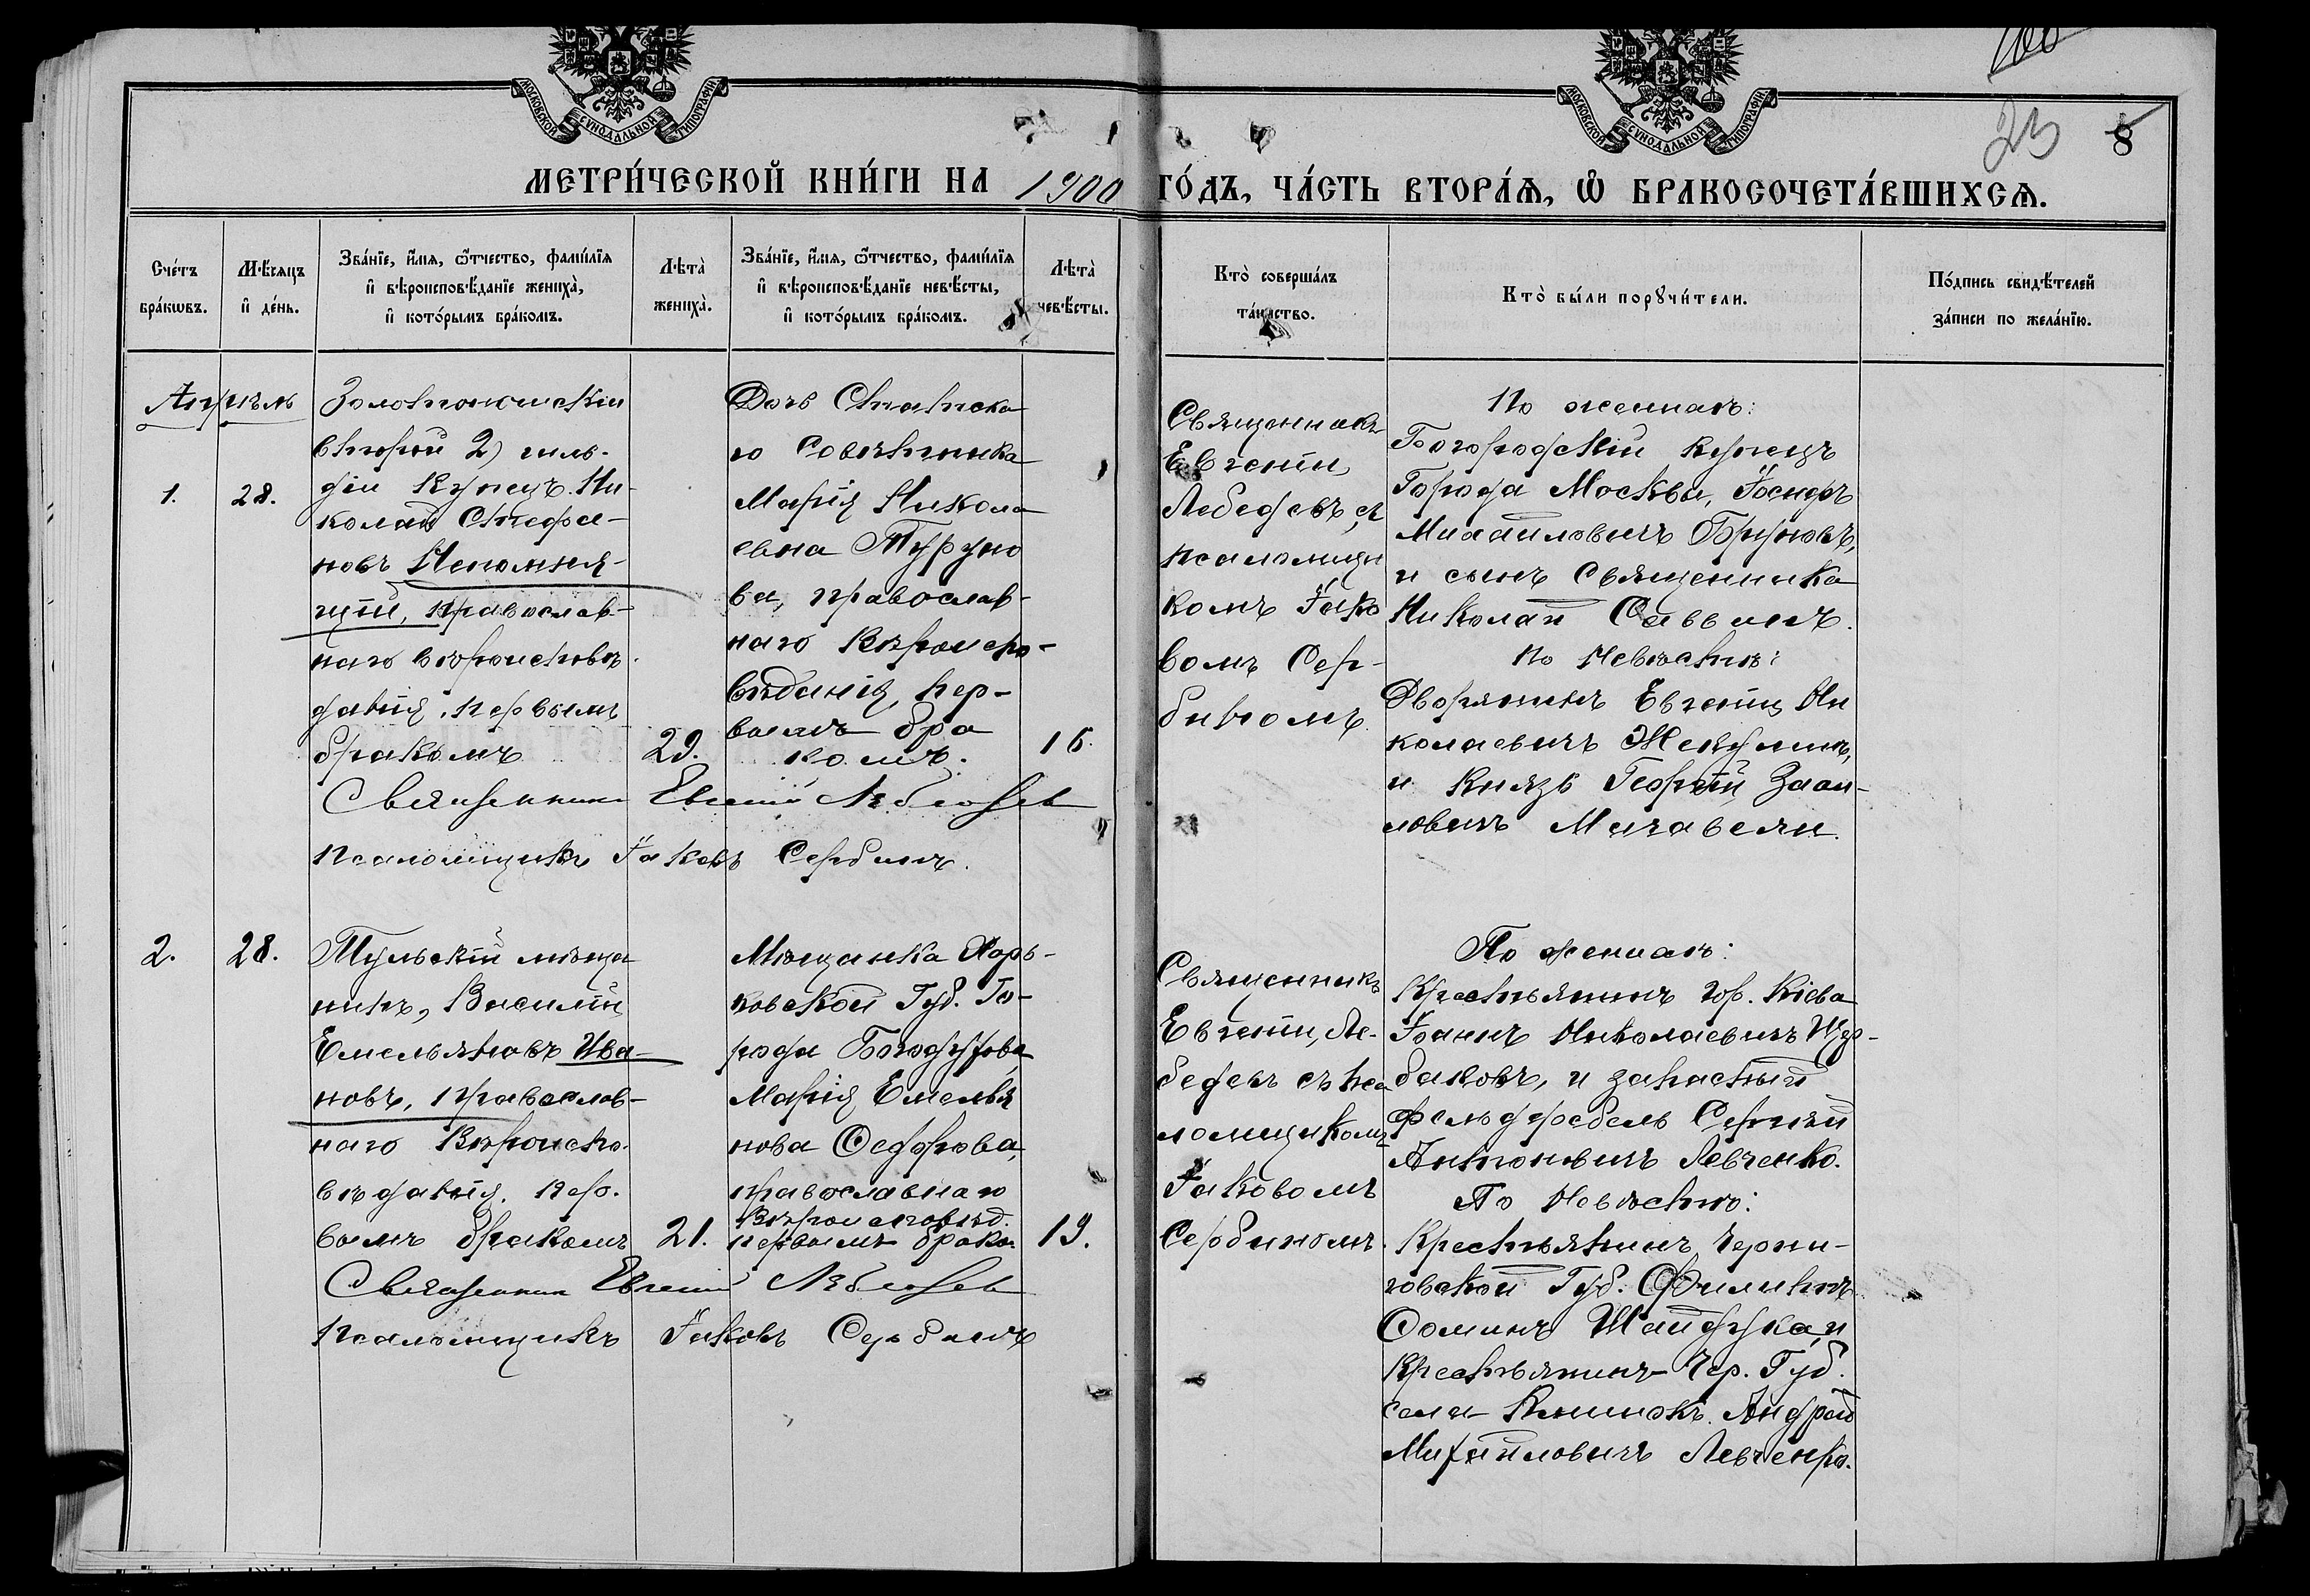 МОСКОВСКОЙ СѴНОДАЛЬНОЙ ТИПОГРАФІИ
МОСКОВСКОЙ СѴНОДАЛЬНОЙ ТИПОГРАФІИ
100
23
8
МЕТРИ́ЧЕСКОЙ КНИ́ГИ НА 1900 ГО́ДЪ, ЧА́СТЬ ВТОРА́Ѧ, Ѡ҆ БРАКОСОЧЕТА́ВШИХСѦ.
Сче́тъ
бра́кѡвъ.
Мѣ́сяцъ
и҆ де́нь.
Зва́нїе, и҆́мя, ѻ҆́тчество, фами́лїя
и҆ вѣроисповѣ́данїе жениха̀,
и҆ кото́рымъ бра́комъ.
Лѣта̀
жениха̀.
Зва́нїе, и҆́мя, ѻ҆́тчество, фами́лїя
и҆ вѣроисповѣ́данїе невѣ́сты,
и҆ кото́рымъ бра́комъ.
Лѣта̀
невѣ́сты.
Кто̀ соверша́лъ
та́инство.
Кто̀ бы́ли порꙋчи́тели.
По́дпись свидѣ́телей
за́писи по жела́нїю.
Апрѣль
1.
28.
Золотоношскій
второй 2) гиль-
діи Купецъ. Ни-
колай Стефа-
новъ Непомня-
щій, православ-
наго вѣроисповѣ-
данія, первымъ
бракомъ
29.
Дочь Статска
го Совѣтника
Марія Никола
евна Туруно
ва, православ-
наго Вѣроиспо-
вѣданія, пер-
вымъ бра
комъ.
16.
Священникъ
Евгеній
Лебедевъ, съ
псаломщи
комъ Іако
вомъ Сер-
бином
По женихѣ:
Богородскій купецъ
Города Москвы, Іосифъ
Михайловичъ Бруновъ,
и сынъ Священника
Николай Саввичъ.
По Невѣстѣ:
Дворянинъ Евгеній Ни
колаевичъ Жекулинъ,
и Князь Георгій
ловичъ
Священникъ Евгеній Лебедев
Псаломщикъ Іаковъ Сербинъ.
2.
28.
Тульскій мѣща
нинъ, Василій
Емельяновъ Ива-
новъ, православ-
наго Вѣроиспо-
вѣданія, пер-
вымъ бракомъ
21.
Мѣщанка Харь-
ковской Губ. Го-
рода Богодухова,
Марія Емелья
нова Федорова,
православнаго
Вѣроисповѣд.
первымъ брако
19.
Священникъ
Евгеній, Ле-
бедевъ съ пса
ломщикомъ
Іаковомъ
Сербиномъ.
По женихѣ:
Крестьянинъ гор. Кіева
Іоаннъ Николаевичъ Щер-
баковъ, и запасный
фельдфебель Сергѣй
Антоновичъ Левченко.
По Невѣстѣ:
Крестьянинъ Черни-
говской Губ. Филиппъ
Фоминъ Шайдука, и
Крестьянинъ Чер. Губ.
села Андрей
Михайловичъ Левченко.
Священник Евгеній Лебедев
Псаломщикъ Іаковъ Сербинъ